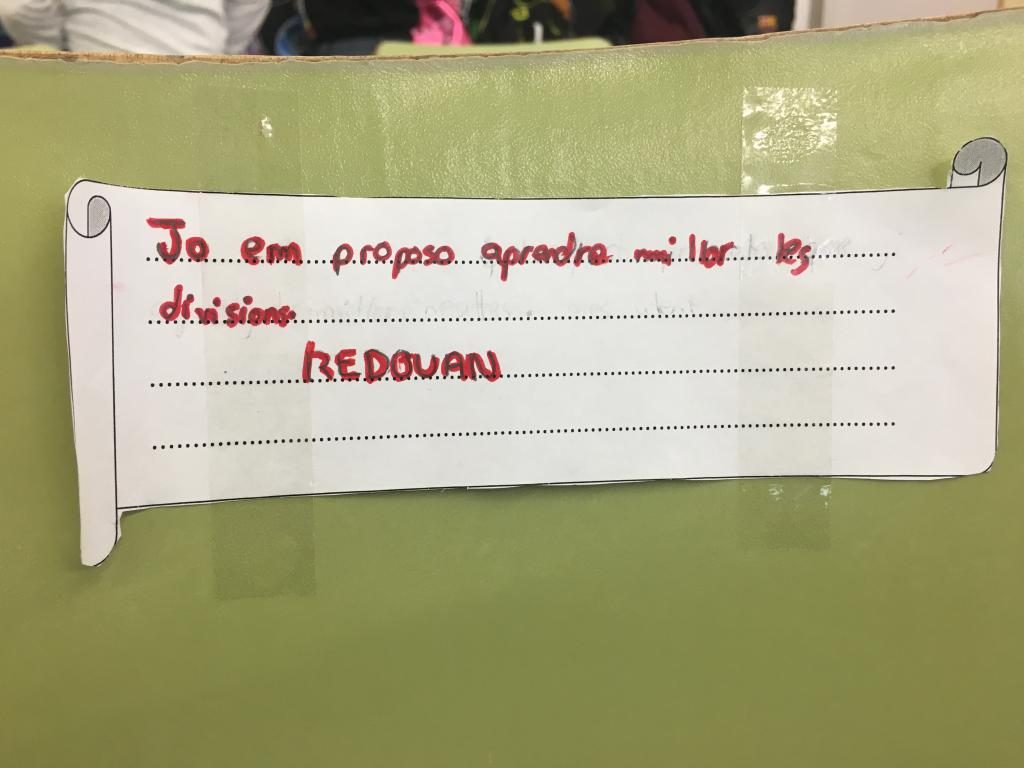 Jo em proposo aprendre millor les
divisions
REDOUAN